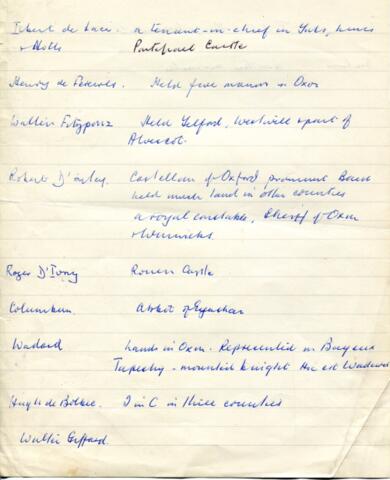 Ilbert de Laci. a tenant-in-chief in Yorks, Lincs
& Notts Pontefract Castle
Henry de Ferrers. Held five manors in Oxon
Walter Fitzponz Held Yelford, Westwell & part of
Alvescot.
Robert D'Oyley. Castellan of Oxford, prominent Baron
held much land in other counties
a royal constable, Sheriff of Oxon
& Warwicks.
Roger D'Ivry Rouen Castle
Columban Abbot of Eynsham
Wadard Lands in Oxon. Represented in Bayeux
Tapestry - mounted knight Hic est Wadard
Hugh de Bolbec. T in C in three counties
Walter Giffard.